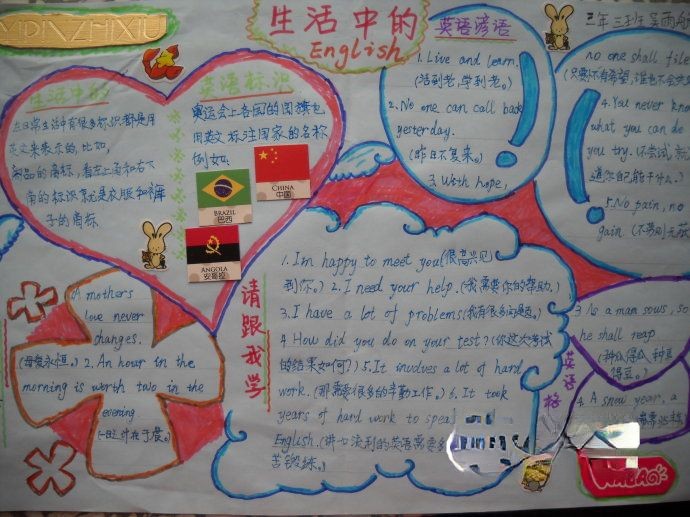 YIPINZHIXIU
生活中的
English
英语谚语
三年三班
生活中的
在日常生活中有很多标识都是用
英文来表示的,比如,
商品的商标,看左上角和右下
角的标识就是衣服和裤
子的商标
英语标识
奥运会上各国的国旗也
用英文标注国家的名称
例如:
CHINA
中国
BRAZIL
巴西
ANGOLA
安哥拉
1. Live and learn.
(活到老,学到老。)
2. No one can call back
yesterday.
(昨日不复来。)
3. With hope,
no one shall
4. You never know
what you can do
you try.
5. No pain, no
gain.
请跟我学
1. I'm happy to meet you(很高兴见
到你。) 2. I need your help.(我需要你的帮助。)
3. I have a lot of problems(我有很多问题。)
4. How did you do on your test?(你这次考试
的结果如何?) 5. It involves a lot of hard
work.(那需要很多的辛勤工作。) 6. It took
years of hard work to speak
English.(讲一口流利的英语需要
苦锻炼。)
A mothers
love never
changes.
(母爱永恒。) 2. An hour in the
morning is worth two in the
evening
(一日之计在于晨。)
英语
格
3 As a man sows, so
he shall reap
(种瓜得瓜,种豆
得豆。)
4. A snow year, a